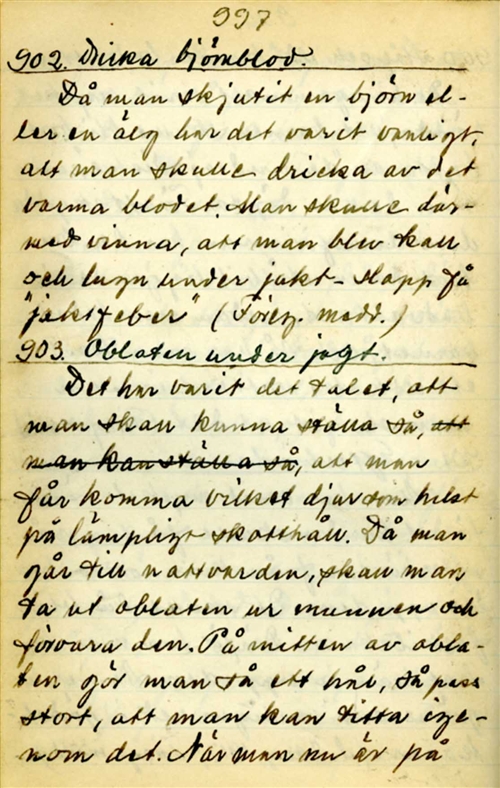 997
902. Dricka björnblod.
Då man skjutit en björn el-
ler en älg har det varit vanligt,
att man skulle dricka av det
varma blodet. Man skulle där-
med vinna, att man blev kall
och lugn under jakt - slapp få
"jaktfeber" (Föreg. medd.)
903. Oblaten under jagt.
Det har varit det talet, att
man skall kunna ställa så, att
man kan ställa så, att man
får komma vilket djur som helst
på lämpligt skotthåll. Då man
går till nattvarden, skall man
ta ut oblaten ur munnen och
förvara den. På mitten av obla-
ten gör man så ett hål, så pass
stort, att man kan titta ige-
nom det. När man nu är på